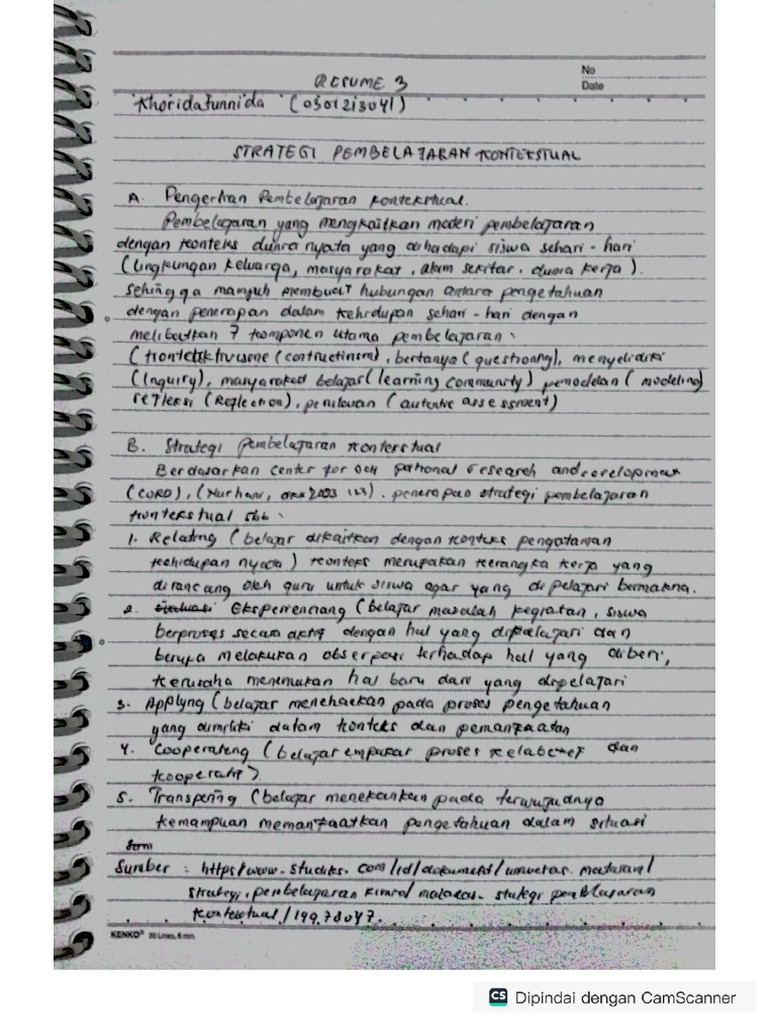 No
RESUME 3
Date
Khoridatunnida (0301213041)
STRATEGI PEMBELAJARAN KONTEKSTUAL
A. Pengertian Pembelajaran Kontekstual.
Pembelajaran yang mengkaitkan materi pembelajaran
dengan konteks dunia nyata yang dihadapi siswa sehari-hari
(lingkungan keluarga, masyarakat, alam sekitar, dunia kerja).
Sehingga mampuh membuat hubungan antara pengetahuan
dengan penerapan dalam kehidupan sehari-hari dengan
melibatkan 7 komponen utama pembelajaran:
(contructinsm), bertanya (questioning), menyelidiki
(Inquiry), masyarakat belajar (learning community) pemodelan (modeling)
refleksi (Reflection), penilaian (autentic assessment)
B. Strategi pembelajaran kontekstual
Berdasarkan center for research and development
(CORD), 2003 penerapan strategi pembelajaran
kontekstual sbb:
1. Relating (belajar dikaitkan dengan konteks pengalaman
kehidupan nyata) konteks merupakan kerangka kerja yang
dirancang oleh guru untuk siswa agar yang dipelajari bermakna.
2. (belajar masalah kegiatan, siswa
berproses secara aktif dengan hal yang dipelajari dan
berupa melakukan terhadap hal yang diberi,
menemukan hal baru dari yang dipelajari
3. Applyng (belajar pada proses pengetahuan
yang dimiliki dalam konteks dan pemanfaatan
4. Cooperateng (belajar proses dan
kooperatif).
5. (belajar menekankan pada terwujudnya
kemampuan memanfaatkan pengetahuan dalam situasi
Sumber : https/www.studiks.com/id/
strategi.
kontekstual/
KENKO
Dipindai dengan CamScanner